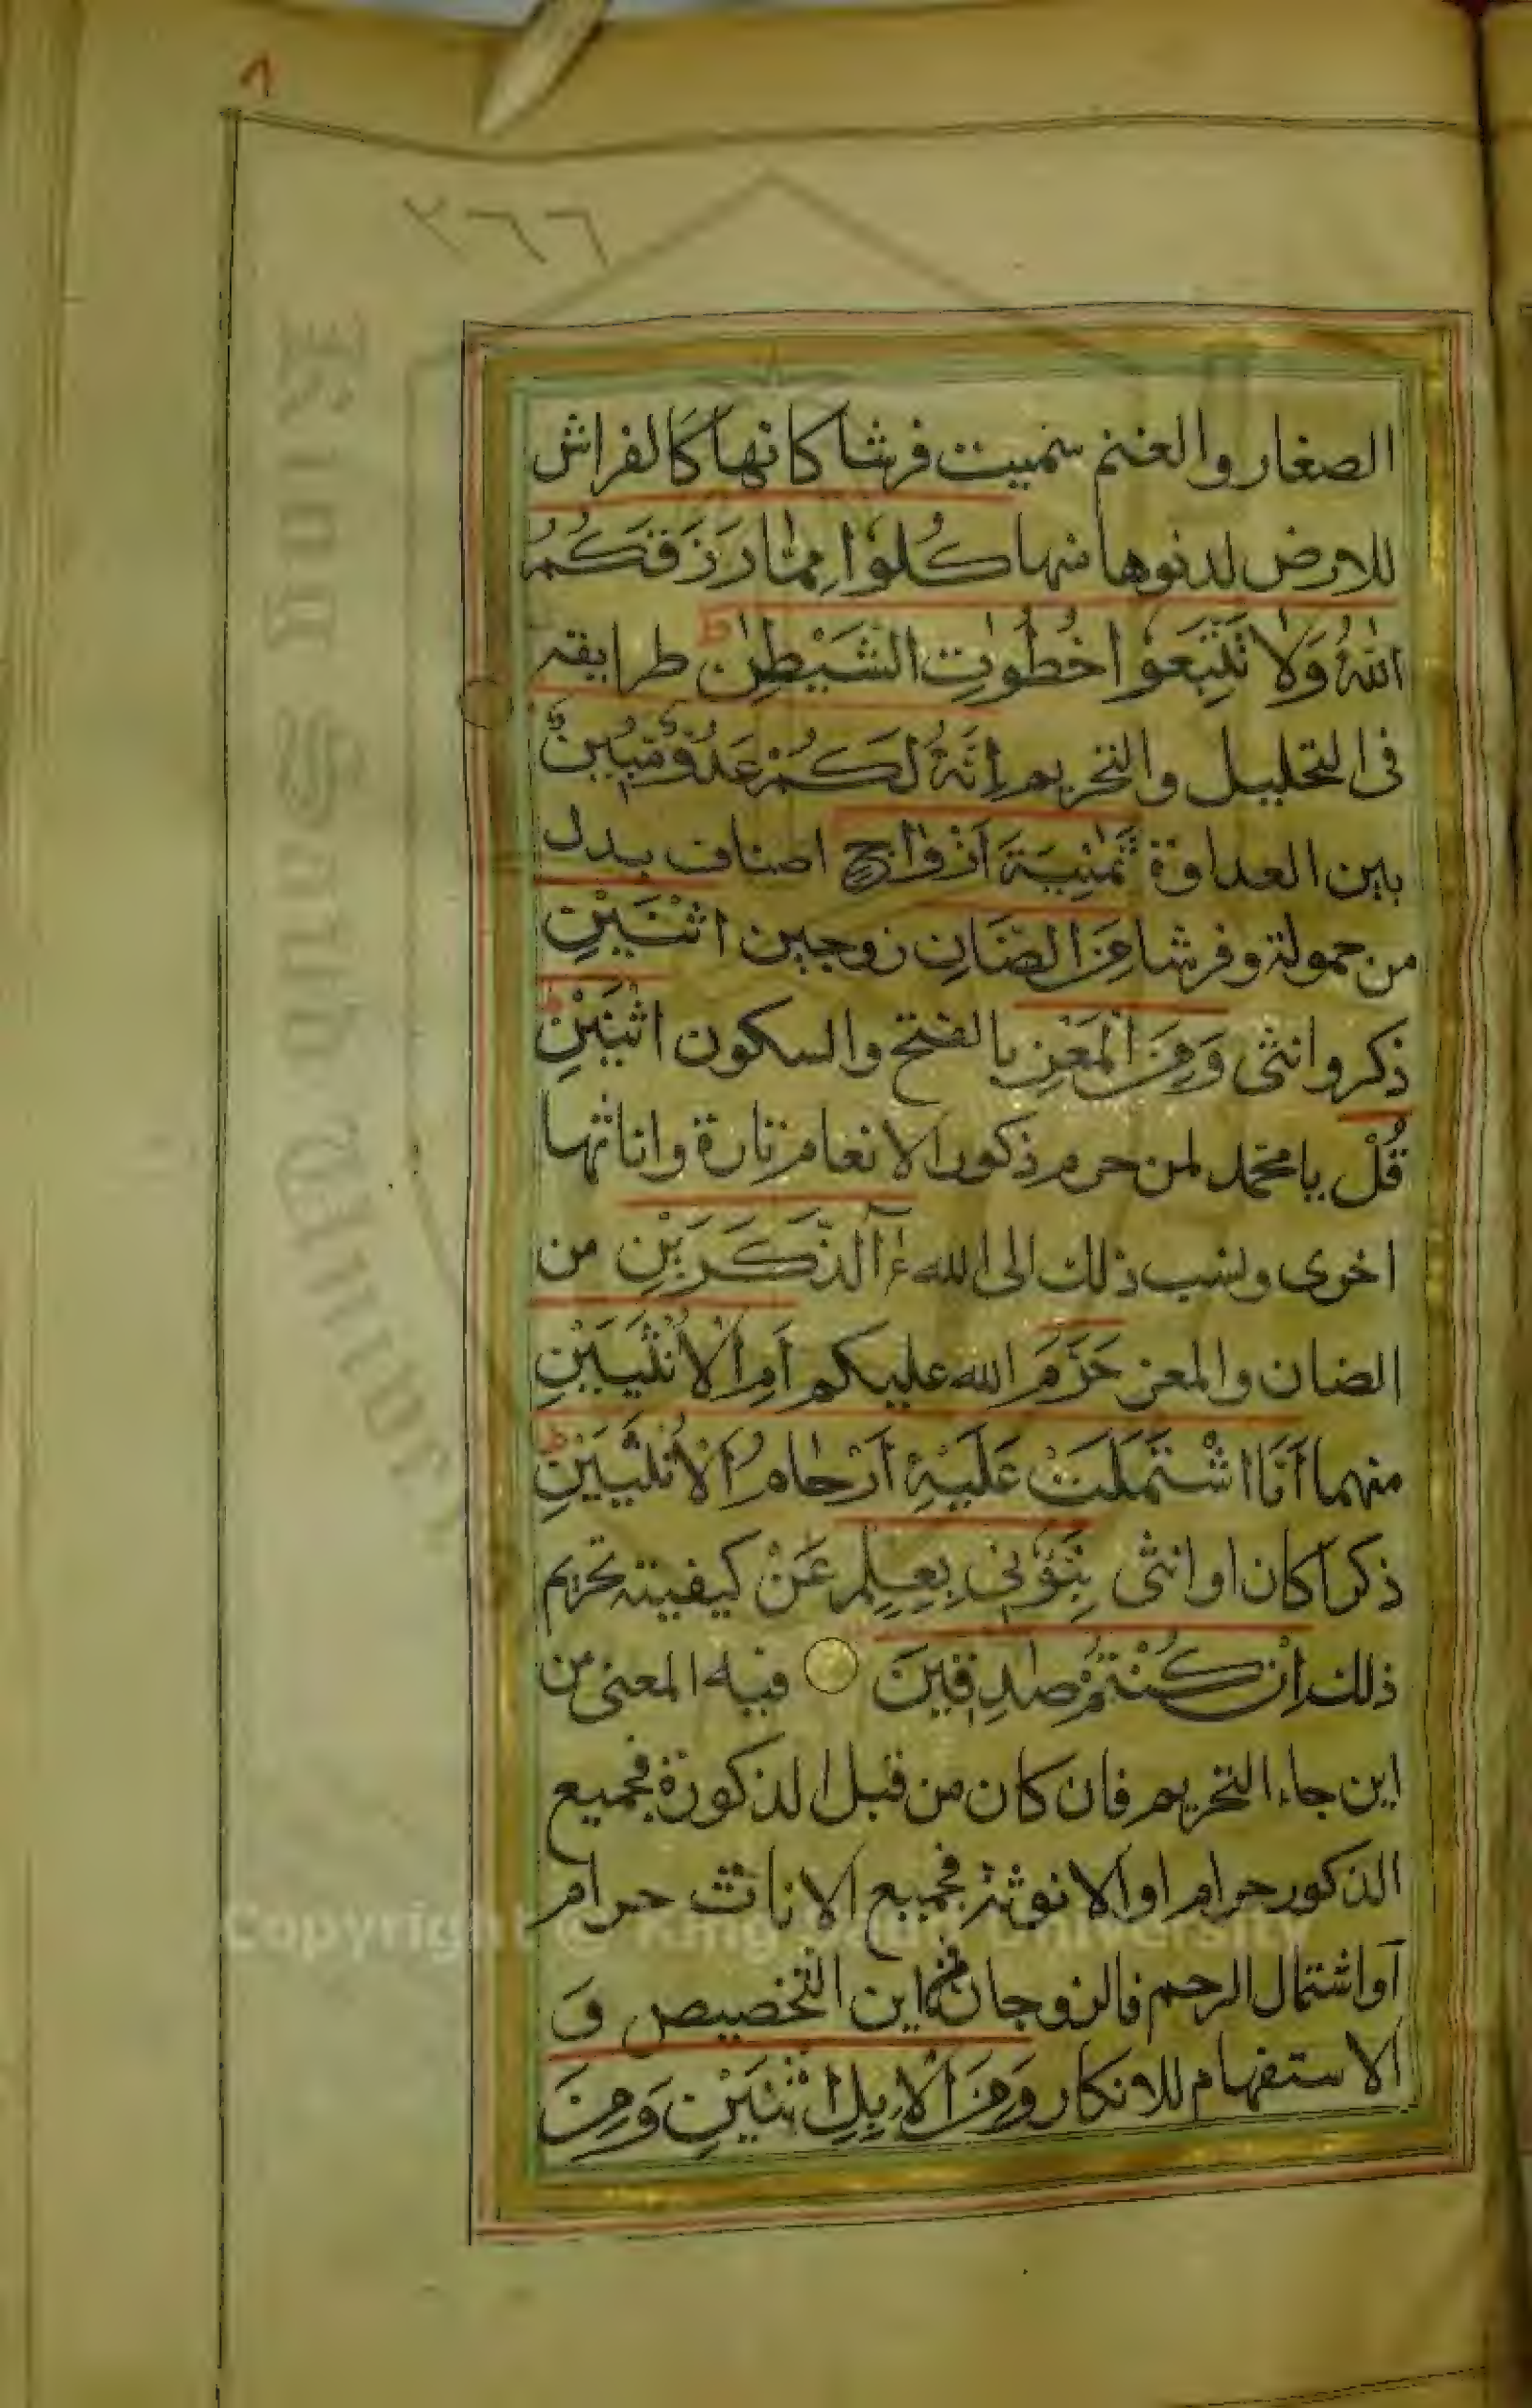 ٨
٢٦٦
الصغار والغنم سميت فرشا كانها كالفراش
للارض لدنوها منها كُلُوا مِمَّا رَزَقَكُمُ
اللهُ وَلَا تَتَّبِعُوا خُطُوٰتِ الشَّيْطٰنِ ط طرايقه
فى التحليل والتحريم إِنَّهُ لَكُمْ عَدُوٌّ مُّبِينٌ
بين العداوة ثَمٰنِيَةَ اَزْوَاجٍ اصناف بدل
من حمولة وفرشا مِنَ الضَّانِ زوجين اثْنَيْنِ
ذكر وانثى وَمِنَ الْمَعْزِ بالفتح والسكون اثْنَيْنِ ط
قُلْ يا محمد لمن حرم ذكور الانعام تارة واناثها
اخرى ونسب ذلك الى الله ءٰٓالذَّكَرَيْنِ من
الضان والمعز حَرَّمَ الله عليكم اَمِ الْاُنْثَيَيْنِ
منهما اَمَّا اشْتَمَلَتْ عَلَيْهِ اَرْحَامُ الْاُنْثَيَيْنِ ط
ذكرا كان او انثى نَبِّؤُنِى بِعِلْمٍ عَنْ كيفية تحريم
ذلك اِنْ كُنْتُمْ صٰدِقِينَ فيه المعنى من
اين جاء التحريم فان كان من قبل الذكورة فجميع
الذكور حرام او الانوثة فجميع الاناث حرام
اَو اشتمال الرحم فالزوجان فمن اين التخصيص وَ
الاستفهام للانكار وَمِنَ الْاِبِلِ اثْنَيْنِ وَمِنَ
King Saud University
Copyright © King Saud University